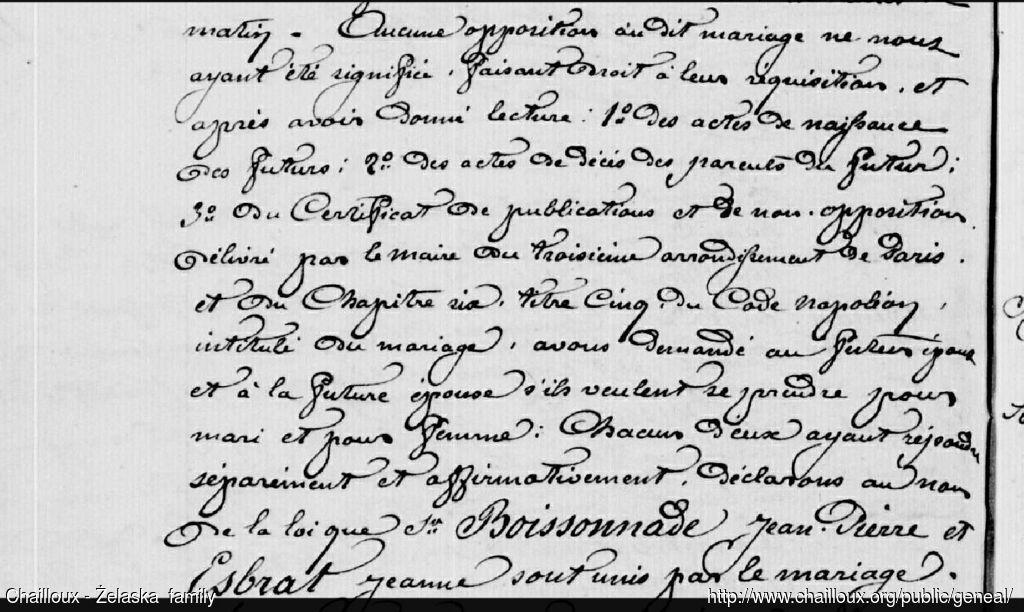 matin. Aucune opposition au dit mariage ne nous
ayant été signifiée, faisant droit à leur réquisition, et
après avoir donné lecture: 1º des actes de naissance
des futurs; 2º des actes de décès des parents du futur;
3º du Certificat de publications et de non-opposition
délivré par le maire du troisième arrondissement de Paris,
et du Chapitre six, titre Cinq, du Code napoléon,
intitulé du mariage, avons demandé au futur époux
et à la future épouse s'ils veulent se prendre pour
mari et pour femme: Chacun d'eux ayant répondu
séparément et affirmativement, Déclarons au nom
de la loi que Sr. Boissonnade Jean-Pierre et
Esbrat Jeanne sont unis par le mariage.
Chailloux - Żelaska family
http://www.chailloux.org/public/geneal/